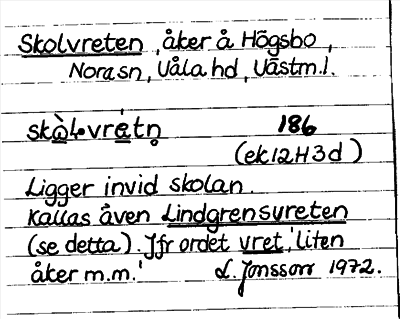 Skolvreten, åker å Högsbo,
Nora sn, Våla hd, Västm.l.
skὰ̱ɫ•vrέ̱tn̥ 186
(ek 12H3d)
Ligger invid skolan.
Kallas även Lindgrensvreten
(se detta). Jfr ordet vret, 'liten
åker m.m.' L. Jonsson 1972.